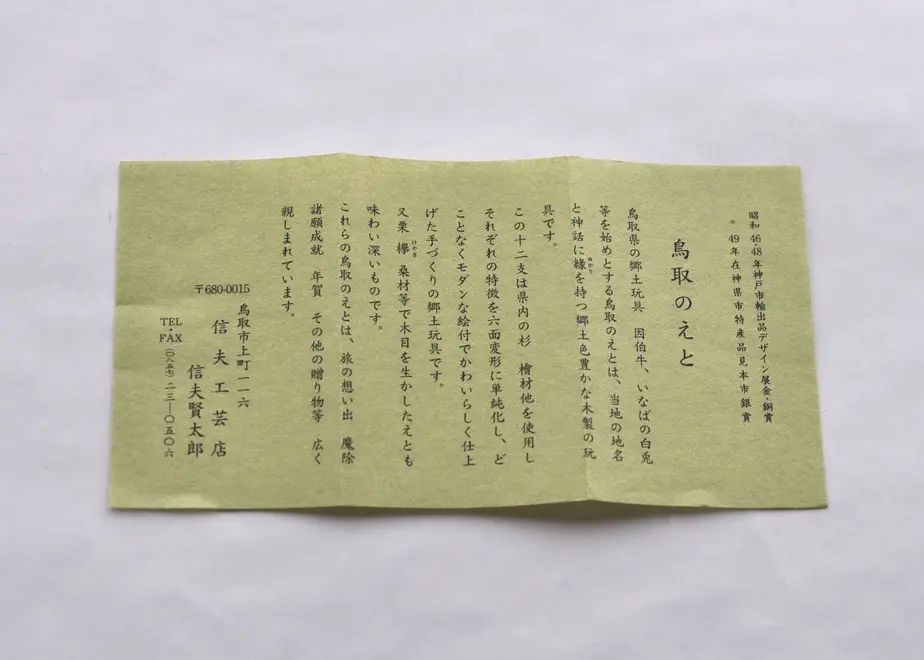 昭和46・48年神戸市輸出品デザイン展金・銅賞
〃 49年在神県市特産品見本市銀賞
鳥取のえと
鳥取県の郷土玩具 因伯牛、いなばの白兎
等を始めとする鳥取のえとは、当地の地名
と神話に縁を持つ郷土色豊かな木製の玩
ゆかり
具です。
この十二支は県内の杉 檜材他を使用し
それぞれの特徴を六面変形に単純化し、ど
ことなくモダンな絵付でかわいらしく仕上
げた手づくりの郷土玩具です。
又栗 欅 桑材等で木目を生かしたえとも
けやき
味わい深いものです。
これらの鳥取のえとは、旅の想い出 魔除
諸願成就 年賀 その他の贈り物等 広く
親しまれています。
〒680-0015
鳥取市上町一一六
信夫工芸店
信夫賢太郎
TEL・FAX (〇八五七)二三―〇五〇六